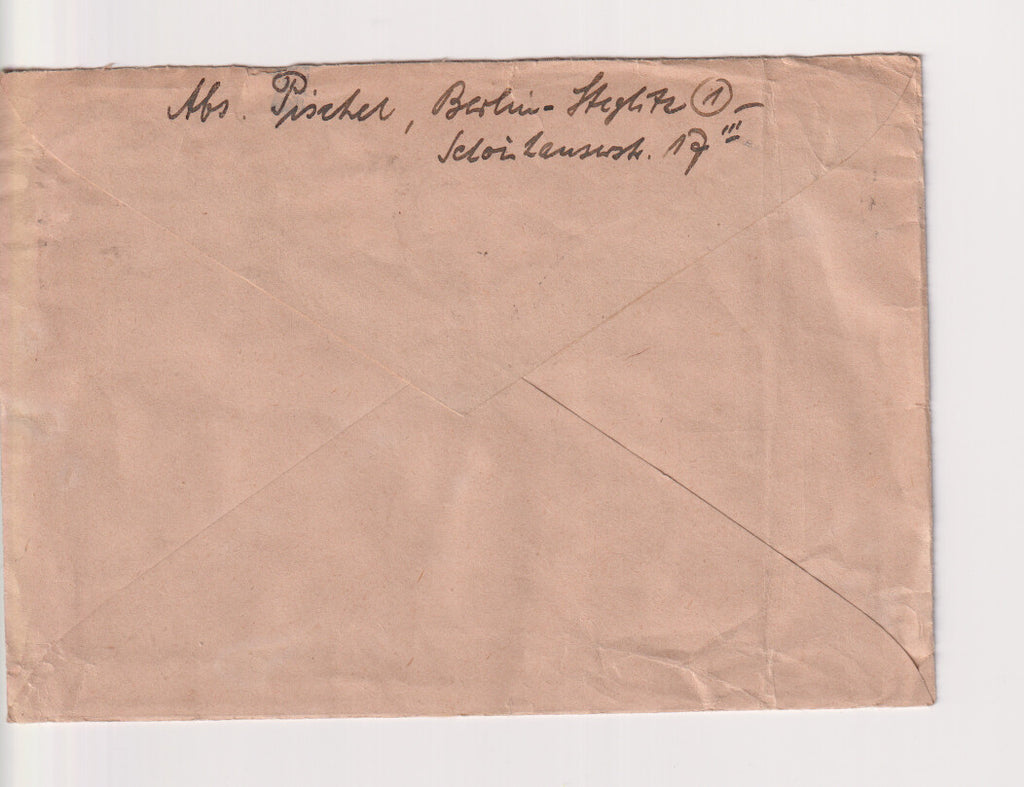 Abs. Pischel, Berlin-Steglitz ① –
Schönhauserstr. 17 III